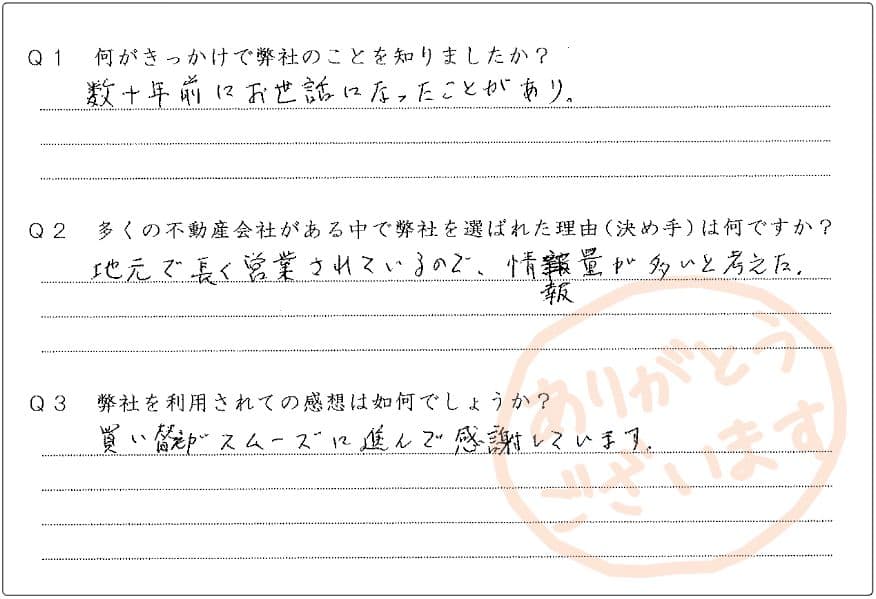 Q1 何がきっかけで弊社のことを知りましたか?
数十年前にお世話になったことがあり。
Q2 多くの不動産会社がある中で弊社を選ばれた理由(決め手)は何ですか?
地元で長く営業されているので、情報量が多いと考えた。
報
Q3 弊社を利用されての感想は如何でしょうか?
買い替えがスムーズに進んで感謝しています。
ありがとう
ございます